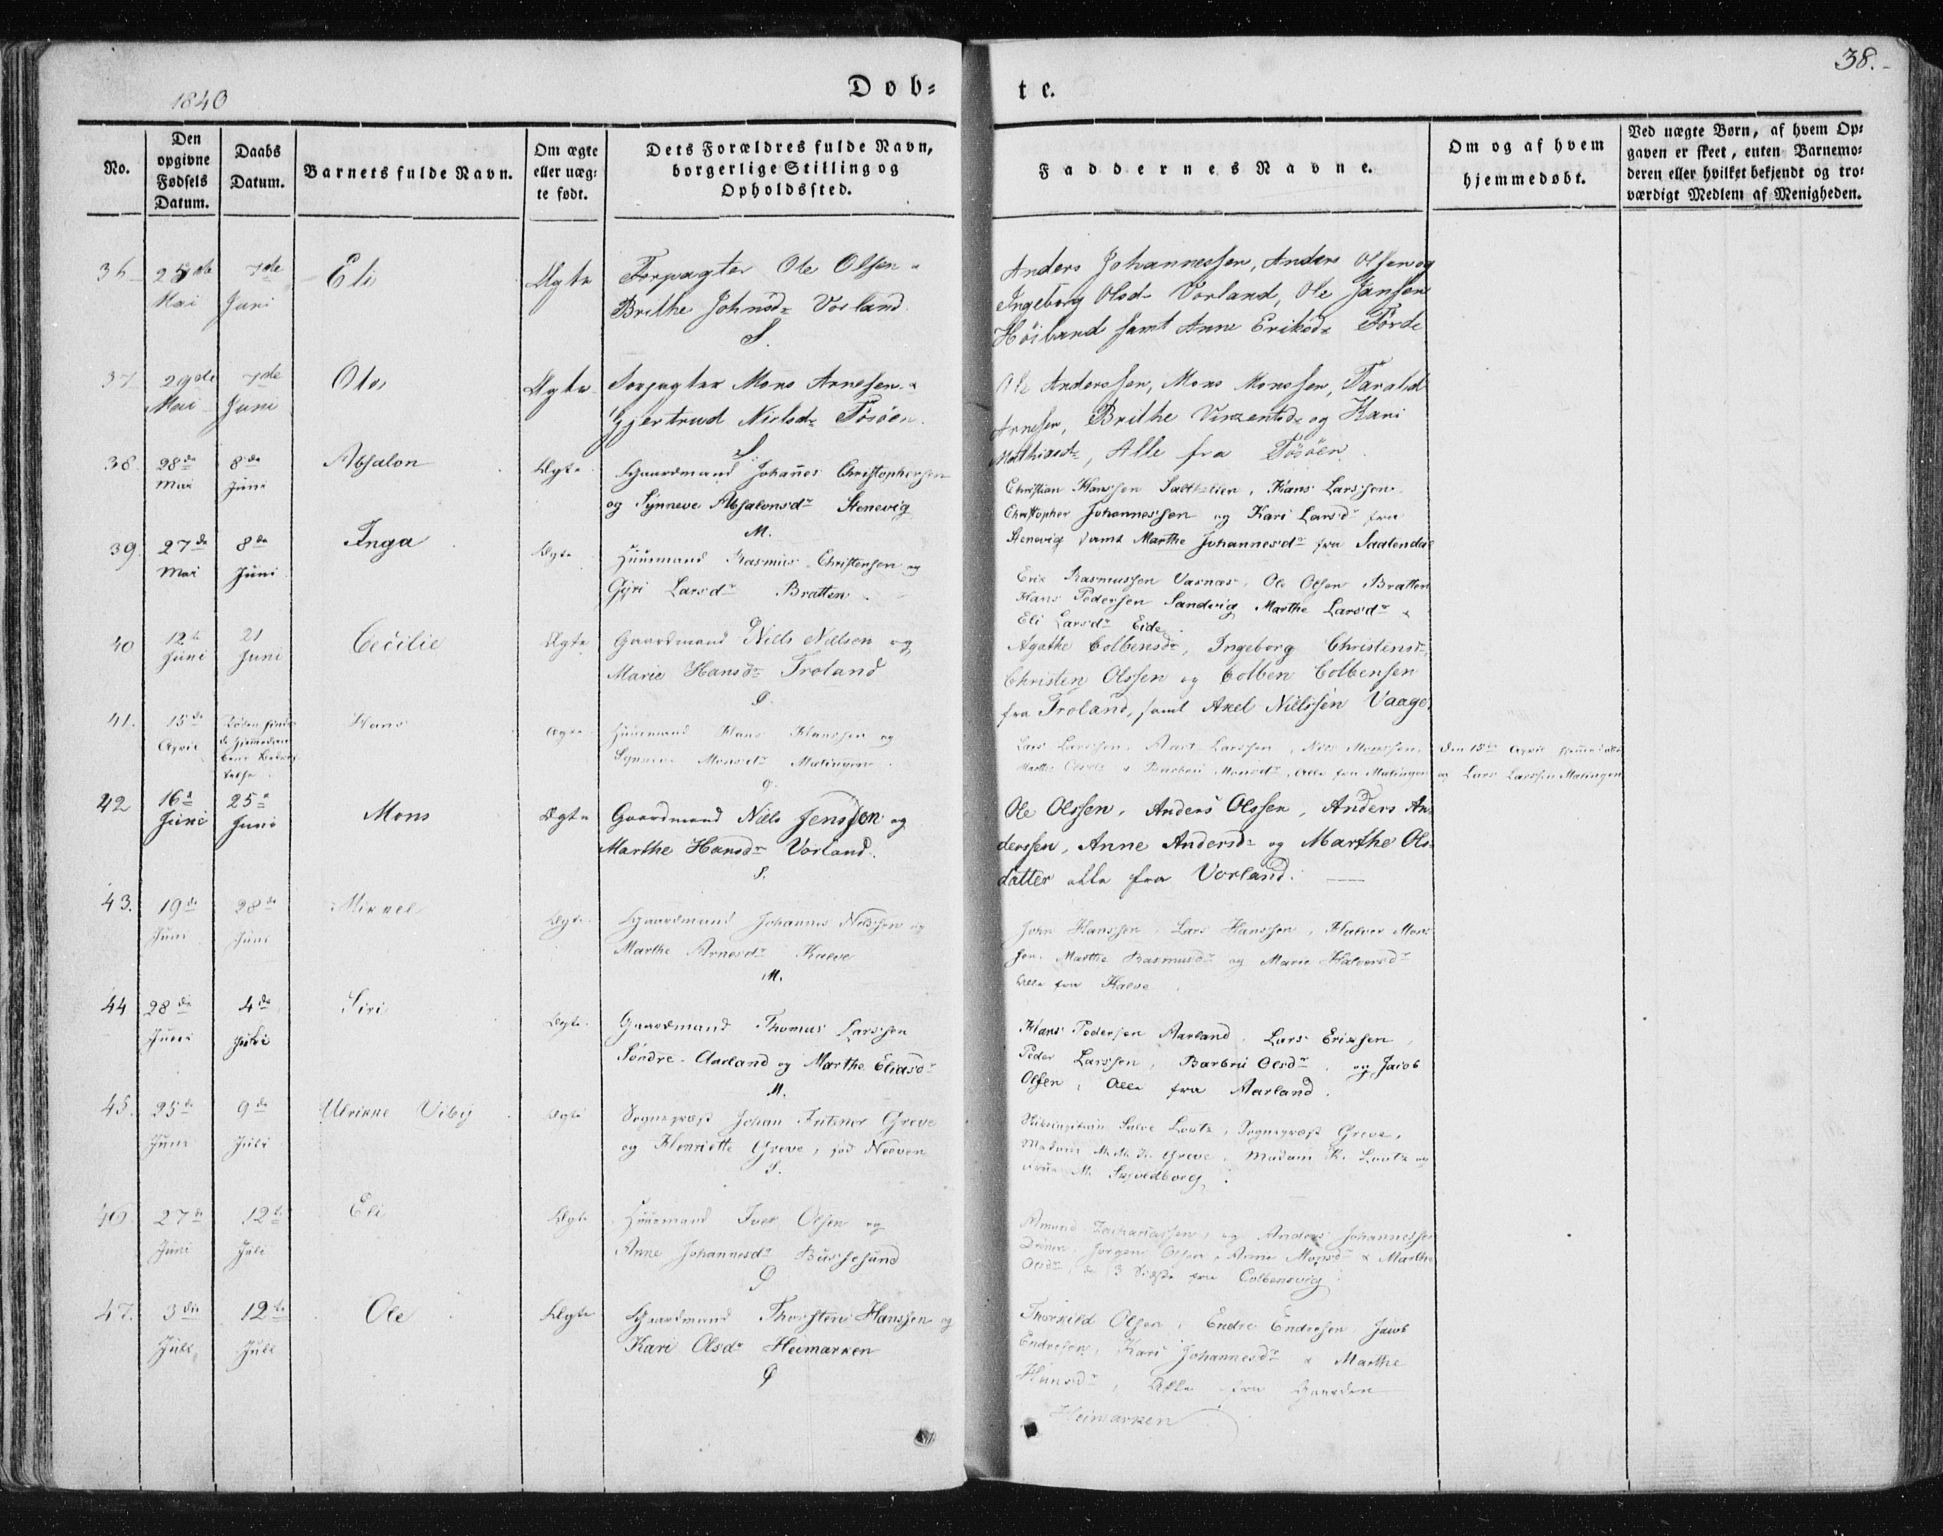 1840
Døb-
te.
38.
No.
Den opgivne Fødsels Datum.
Daabs Datum.
Barnets fulde Navn.
Om ægte eller uægte født.
Dets Forældres fulde Navn, borgerlige Stilling og Opholdssted.
Faddernes Navne.
Om og af hvem hjemmedøbt.
Ved uægte Børn, af hvem Opgaven er skeet, enten Barnemoderen eller hvilket bekjendt og troværdigt Medlem af Menigheden.
36 7de Eli Ægte Forpagter Ole Olsen
Mai Juni Brithe Johnsdr Vorland.
S.
Anders Johannessen, Anders Olsen og
Ingeborg Olsdr Vorland, Ole Jansen
Høiland samt Anne Eriksdr Førde
37 29de 7de Ole Ægte Forpagter Mons Arnesen &
Mai Juni Gjertrud Nielsdr Føsøen.
S.
Ole Anderssen, Mons Monssen, Farald
Arnesen, Brithe Vinzentsdr og Kari
Mathiasdr, Alle fra Føsøen.
38. 28de 8de Absalon Ægte Gaardmand Johanes Christophersen
Mai Juni og Synneve Absalonsdr Stenevig
M.
Christian Hanssen Saltkellen, Hans Larssen,
Christopher Johannessen og Kari Larsdr fra
Stenevig samt Marthe Johannesdr fra Sadlendal
39. 27de 8de Inga Ægte Huusmand Rasmus Christensen og
Mai Juni Gyri Larsdr Bratten.
Eric Rasmussen Varnæs, Ole Olsen Bratten
Hans Pedersen Sandvig, Marthe Larsdr &
Eli Larsdr Eide.
40 12te 21 Cecilie Ægte Gaardmand Niels Nielsen og
Juni Juni Marie Hansdr Troland
Ø.
Agathe Colbensdr, Ingeborg Christensdr,
Christen Olssen og Colben Colbensen
fra Troland, samt Axel Nielssen Vaage.
41. 15de Hans Ægte Huusmand Hans Hanssen og
April Synneve Monsdr Matingen.
Ø.
Lars Larssen, Larssen, Niels Monssen,
Marthe & Barbru Monsdr, Alle fra Matingen
Den 15de April
og Lars Larssen Matingen
42 16de 25de Mons Ægte Gaardmand Niels Jenssen og
Juni Juni Marthe Hansdr Vorland.
S.
Ole Olssen, Anders Olssen, Anders An-
derssen, Anne Andersdr og Marthe Ols-
datter alle fra Vorland.
43. 19de 28de Mikkel Ægte Gaardmand Johannes Nielssen og
Juni Juni Marthe Arnesdr Kalve
M.
John Hanssen, Lars Hanssen, Halvor Mons-
sen, Marthe Rasmusdr og Marie Halvorsdr
Alle fra Kalve.
44 28de 4de Siri Ægte Gaardmand Thomas Larssen
Juni Juli Søndre Aarland og Marthe Eliasdr
M.
Hans Pedersen Aarland, Lars Erissen,
Peder Larssen, Barbru Olsdr, og Jacob
Olsen, Alle fra Aarland.
45. 25de 9de Ulrikke Viby Ægte Sognepræst Johan Fritzner Greve
Juni Juli og Henriette Greve, fød Neeven
S.
Salve Lootz, Sognepræst Greve,
Madam M. M. K. Greve, Madam K. Lootz og
M.
46 27de 12te Eli Ægte Huusmand Iver Olsen og
Juni Juli Anne Johannesdr Bussesund
Ø
Amund Zachariassen, og Anders Johannessen
Jørgen Olsen, Anne Monsdr & Marthe
Olsdr, de 3 Sidste fra Colbensvig.
47. 3die 12te Ole Ægte Gaardmand Thorsten Hanssen og
Juli Juli Kari Olsdr Heimarken
Ø
Thorkild Olsen, Endre Endresen, Jacob
Endresen, Kari Johannesdr & Marthe
Hansdr, Alle fra Gaarden
Heimarken